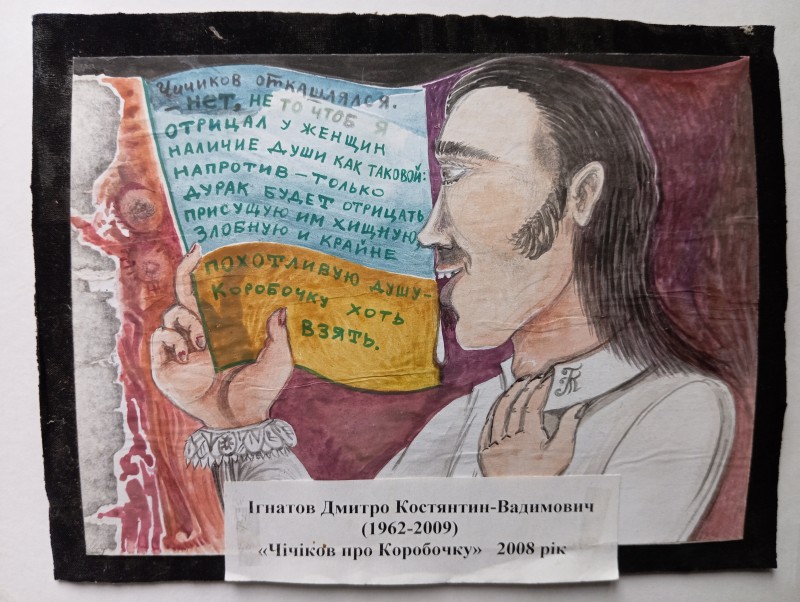 Чичиков откашлялся.
— нет, не то чтоб я
отрицал у женщин
наличие души как таковой:
напротив — только
дурак будет отрицать
присущую им хищную,
злобную и крайне
похотливую душу —
Коробочку хоть
взять.
Ігнатов Дмитро Костянтин-Вадимович
(1962-2009)
«Чічіков про Коробочку» 2008 рік